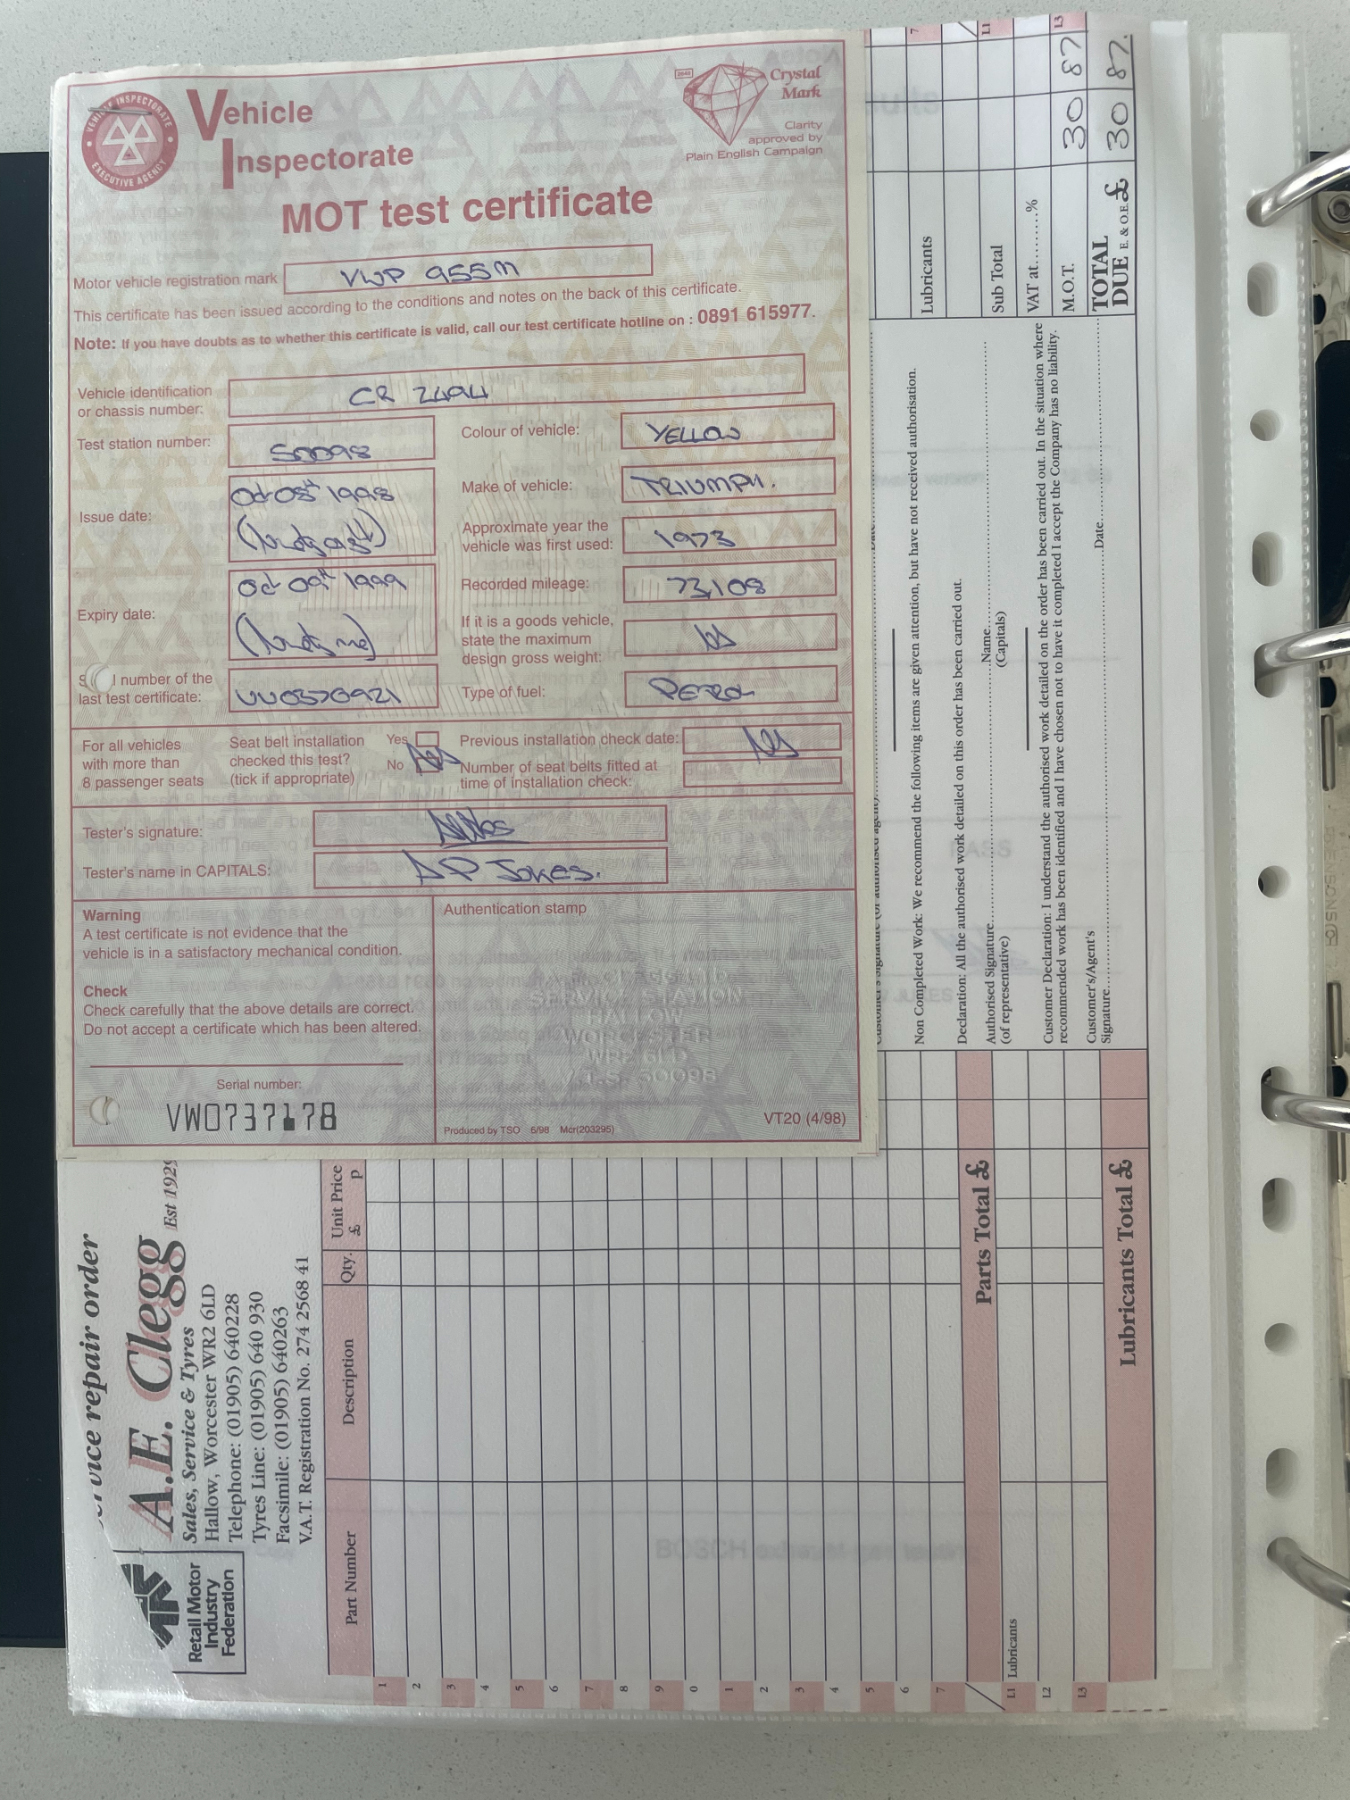 Vehicle
Inspectorate
VEHICLE INSPECTORATE
EXECUTIVE AGENCY
Crystal
Mark
Clarity
approved by
Plain English Campaign
MOT test certificate
Motor vehicle registration mark VWP 955M
This certificate has been issued according to the conditions and notes on the back of this certificate.
Note: If you have doubts as to whether this certificate is valid, call our test certificate hotline on : 0891 615977.
Vehicle identification
or chassis number: CR 2494
Test station number: S0098
Colour of vehicle: YELLOW
Issue date: Oct 08th 1998
Make of vehicle: TRIUMPH.
Approximate year the
vehicle was first used: 1973
Expiry date: Oct 09th 1999
Recorded mileage: 73,108
If it is a goods vehicle,
state the maximum
design gross weight: NA
number of the
last test certificate: UU0370921
Type of fuel: PETROL
For all vehicles
with more than
8 passenger seats
Seat belt installation
checked this test?
(tick if appropriate)
Yes
No
NA
Previous installation check date: NA
Number of seat belts fitted at
time of installation check:
Tester's signature:
Tester's name in CAPITALS: AP JUKES.
Warning
A test certificate is not evidence that the
vehicle is in a satisfactory mechanical condition.
Check
Check carefully that the above details are correct.
Do not accept a certificate which has been altered.
Serial number:
VW0737178
Authentication stamp
SERVICE STATION
HALLOW
WORCESTER
WR2 6LD
V.T.S. 50098
Produced by TSO 6/98 Mcr(203295)
VT20 (4/98)
service repair order
A.E. Clegg Est 1929
Sales, Service & Tyres
Hallow, Worcester WR2 6LD
Telephone: (01905) 640228
Tyres Line: (01905) 640 930
Facsimile: (01905) 640263
V.A.T. Registration No. 274 2568 41
Retail Motor
Industry
Federation
Part Number Description Qty. Unit Price
£ p
1
2
3
4
5
6
7
8
9
0
1
2
3
4
5
6
7
Parts Total £
L1 Lubricants
L2
L3
Lubricants Total £
Non Completed Work: We recommend the following items are given attention, but have not received authorisation.
Declaration: All the authorised work detailed on this order has been carried out.
Authorised Signature Name
(of representative) (Capitals)
Customer Declaration: I understand the authorised work detailed on the order has been carried out. In the situation where
recommended work has been identified and I have chosen not to have it completed I accept the Company has no liability.
Customer's/Agent's
Signature Date
7
L1
L3
Lubricants
Sub Total
VAT at.........%
M.O.T. 30 87
TOTAL
DUE E. & O.E. £ 30 87.